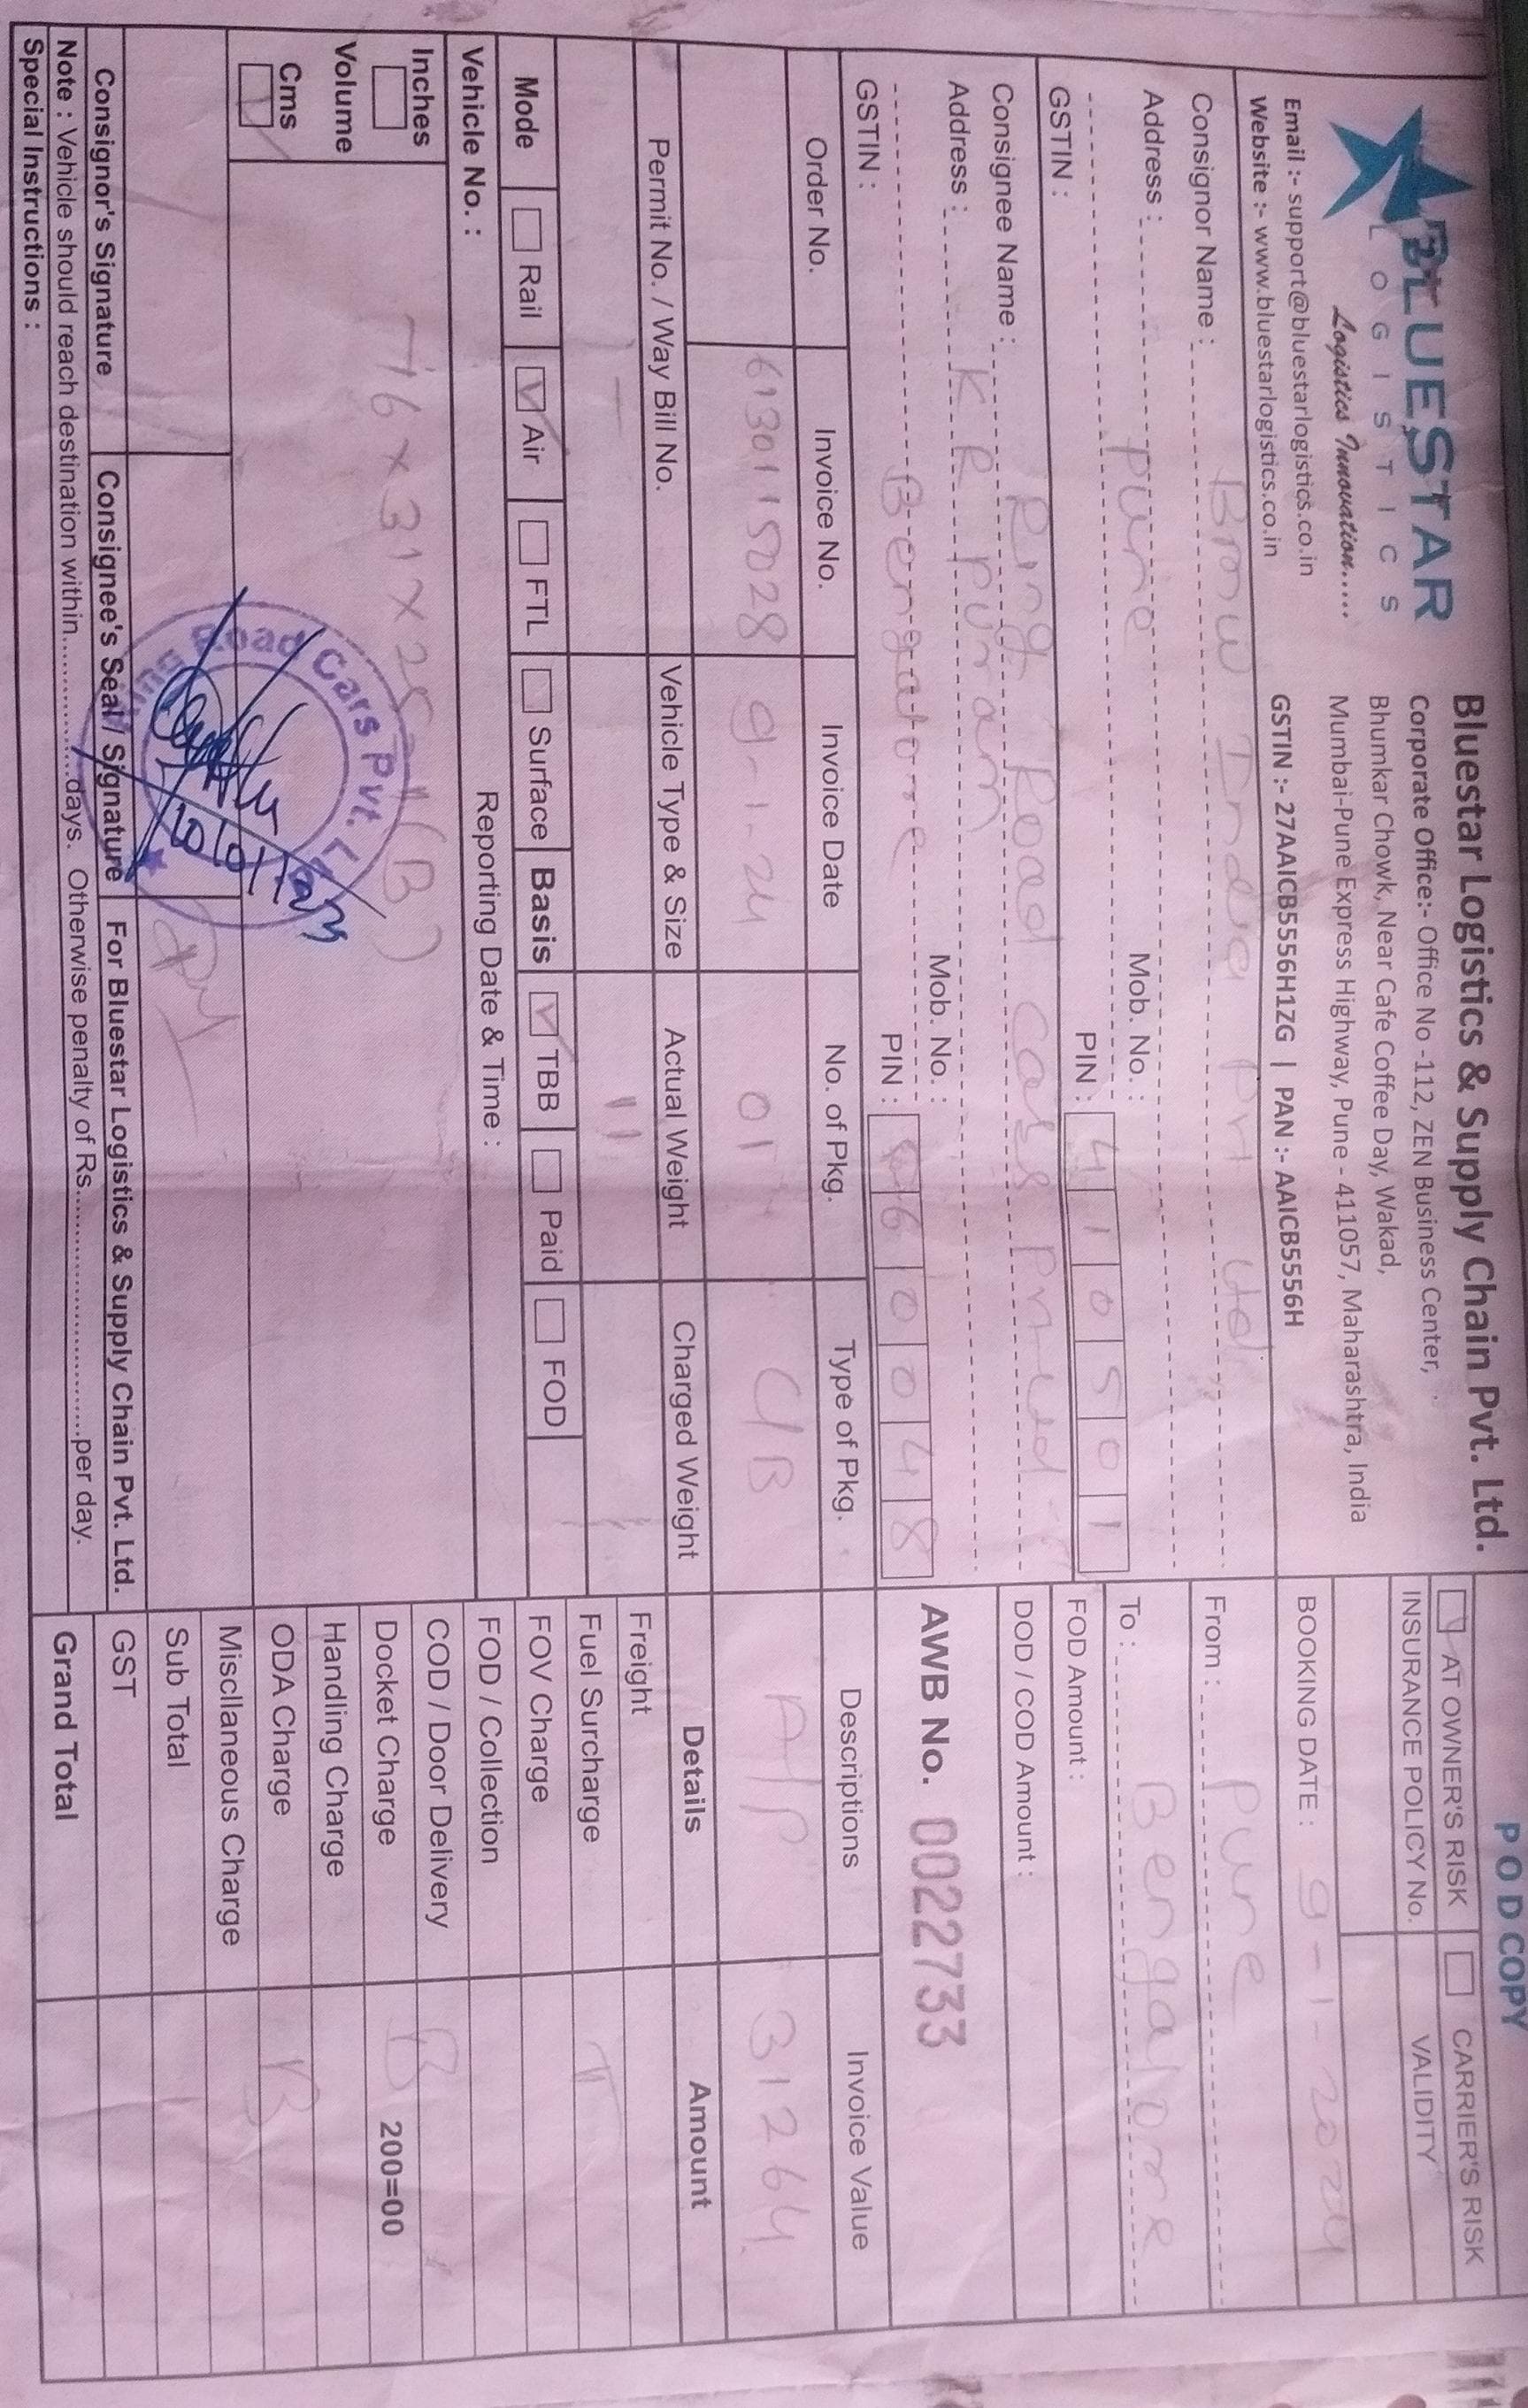 BLUESTAR
LOGISTICS
Logistics Innovation.....
Email :- support@bluestarlogistics.co.in
Website :- www.bluestarlogistics.co.in
Bluestar Logistics & Supply Chain Pvt. Ltd.
Corporate Office:- Office No -112, ZEN Business Center,
Bhumkar Chowk, Near Cafe Coffee Day, Wakad,
Mumbai-Pune Express Highway, Pune - 411057, Maharashtra, India
GSTIN :- 27AAICB5556H1ZG | PAN :- AAICB5556H
POD COPY
AT OWNER'S RISK CARRIER'S RISK
INSURANCE POLICY No. VALIDITY
BOOKING DATE : 9-1-2024
Consignor Name : BMW India Pvt Ltd
Address :
Pune Mob. No. :
PIN : 410501
GSTIN :
From : Pune
To : Bengalore
FOD Amount :
DOD / COD Amount :
Consignee Name : Ring Road Cars Pvt Ltd
Address : K R Puram
Mob. No. :
Bengalore PIN : 60048
GSTIN :
AWB No. 0022733
Order No. Invoice No. Invoice Date No. of Pkg. Type of Pkg. Descriptions Invoice Value
6130115028 9-1-24 01 C/B A/P 31264
Permit No. / Way Bill No. Vehicle Type & Size Actual Weight Charged Weight Details Amount
11
Freight
Fuel Surcharge
FOV Charge
FOD / Collection
COD / Door Delivery
Docket Charge 200=00
Handling Charge
ODA Charge
Miscllaneous Charge
Sub Total
GST
Grand Total
Mode Rail Air FTL Surface Basis TBB Paid FOD
Vehicle No. : Reporting Date & Time :
Inches
Volume
Cms
Road Cars Pvt.
10/01/23
Consignor's Signature Consignee's Seal / Signature For Bluestar Logistics & Supply Chain Pvt. Ltd.
Note : Vehicle should reach destination within..................days. Otherwise penalty of Rs................................per day.
Special Instructions :